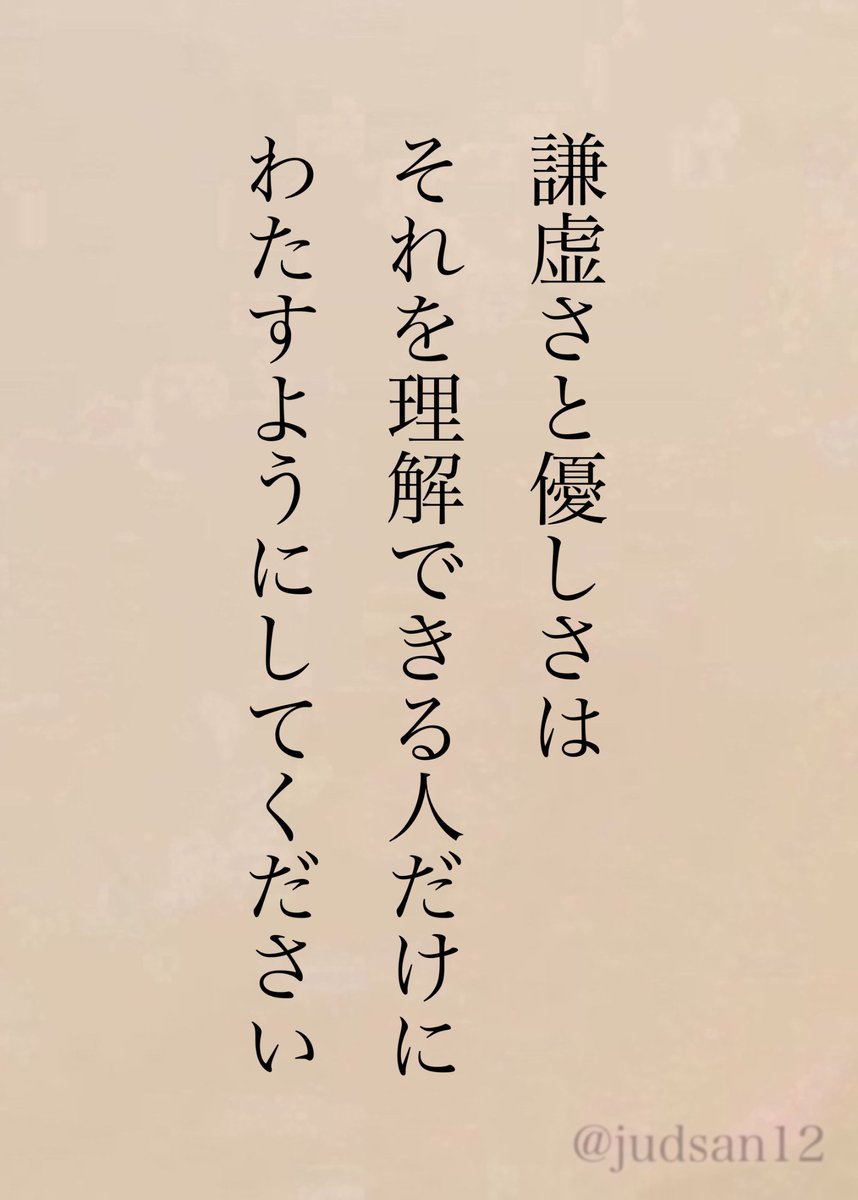 謙虚さと優しさは
それを理解できる人だけに
わたすようにしてください
@judsan12